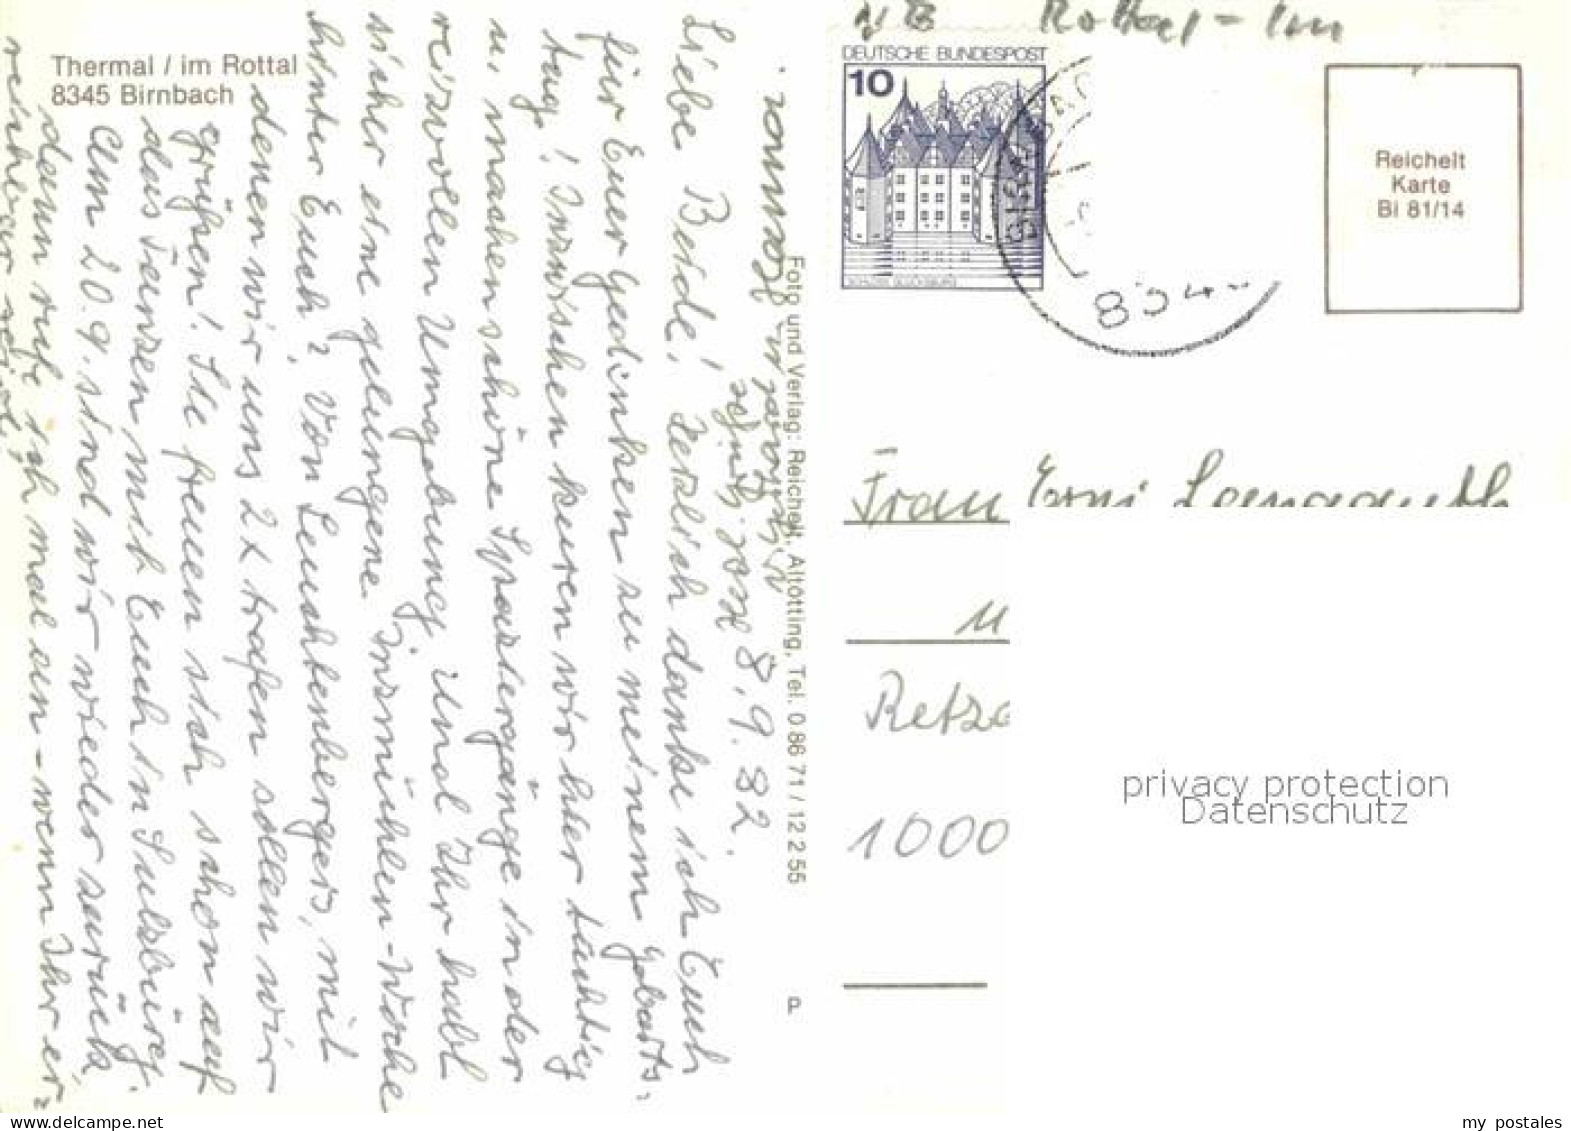 Thermal / im Rottal
8345 Birnbach
8.9.82.
Liebe Beide! Herzlich danke ich Euch
für Euer Gedenken zu meinem Geburts=
tag! Inzwischen kuren wir hier tüchtig
u. machen schöne Spaziergänge in der
reizvollen Umgebung. Und Ihr habt
sicher eine gelungene Ismühlen-Woche
hinter Euch? Von Leuchtenbergers, mit
denen wir uns 2x trafen sollen wir
grüßen! Sie freuen sich schon auf
das Tanzen mit Euch in Sulzbürg.
Am 20.9. sind wir wieder zurück
dann rufe ich mal an - wenn Ihr er=
reichbar seid,
Foto und Verlag: Reichelt, Altötting, Tel. 0 86 71 / 12 2 55
P
DEUTSCHE BUNDESPOST
10
SCHLOSS GLÜCKSBURG
Reichelt
Karte
Bi 81/14
Frau Erni
u
Retz
1000
privacy protection
Datenschutz
my postales